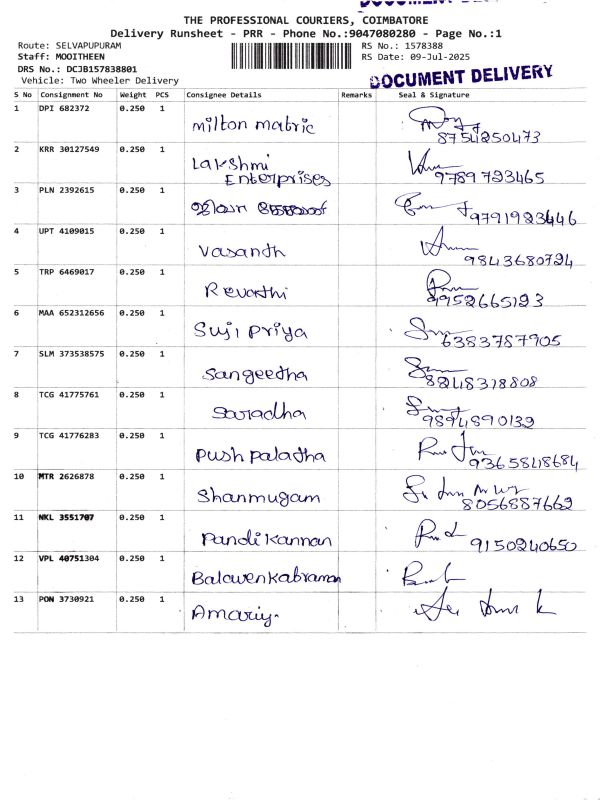 THE PROFESSIONAL COURIERS, COIMBATORE
Delivery Runsheet - PRR - Phone No.:9047080280 - Page No.:1
Route: SELVAPUPURAM
RS No.: 1578388
Staff: MOOITHEEN
RS Date: 09-Jul-2025
DRS No.: DCJB157838801
Vehicle: Two Wheeler Delivery
DOCUMENT DELIVERY
S No Consignment No Weight PCS Consignee Details Remarks Seal & Signature
1 DPI 682372 0.250 1 Milton matric 8754250473
2 KRR 30127549 0.250 1 Lakshmi
Enterprises 9789723465
3 PLN 2392615 0.250 1 9791923446
4 UPT 4109015 0.250 1 Vasanth 9843680724
5 TRP 6469017 0.250 1 Revathi 9952665123
6 MAA 652312656 0.250 1 Suji Priya 6383787905
7 SLM 373538575 0.250 1 Sangeetha 8248318808
8 TCG 41775761 0.250 1 Saradha 9894890132
9 TCG 41776283 0.250 1 Pushpalatha 9365848684
10 MTR 2626878 0.250 1 Shanmugam 8056887662
11 NKL 3551707 0.250 1 Pandi Kannan 9150240650
12 VPL 40751304 0.250 1 Balavenkabraman
13 PON 3730921 0.250 1